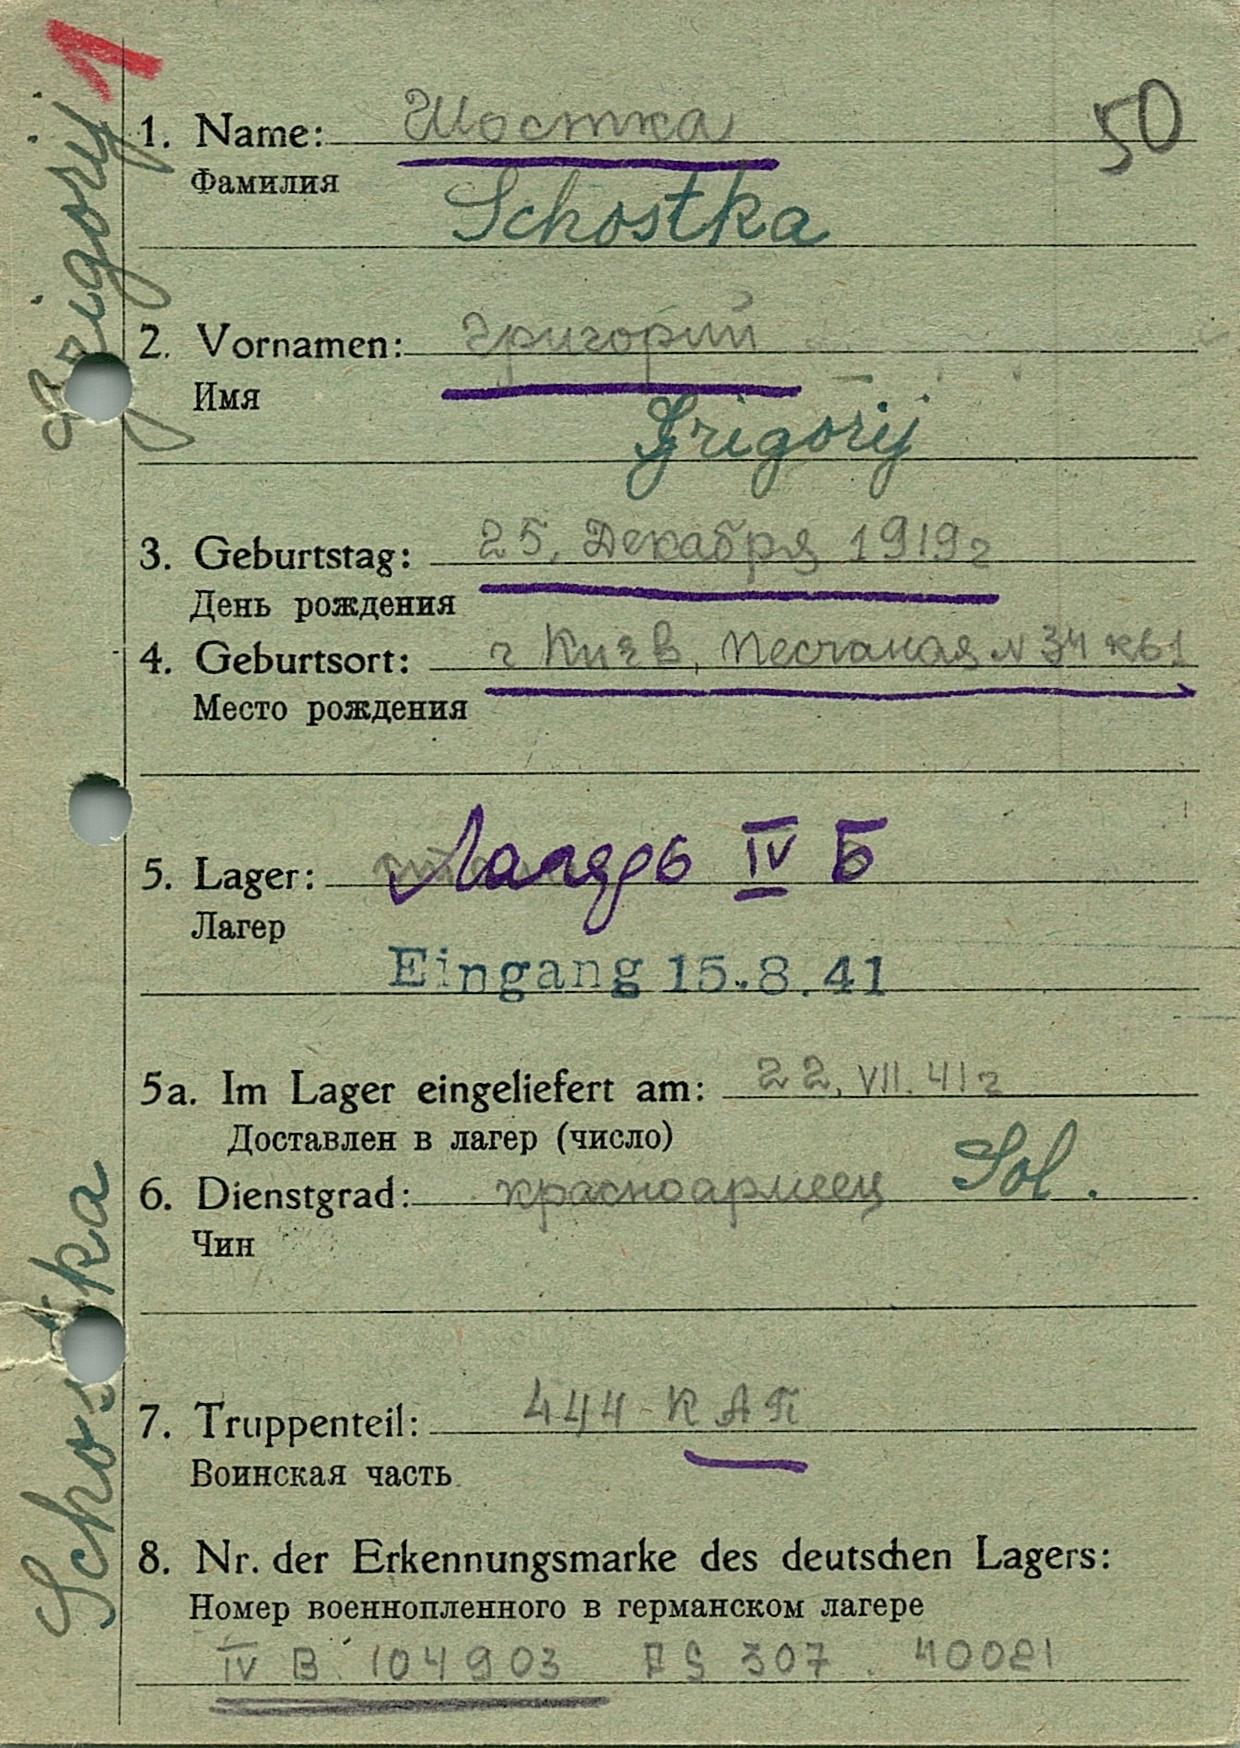 1
50
1. Name: Шостка
Фамилия
Schostka
2. Vornamen: Григорий
Имя
Grigorij
3. Geburtstag: 25. Декабря 1919 г
День рождения
4. Geburtsort: г Киев, Песчаная № 34 кв 1
Место рождения
5. Lager: IV Б
Лагер
Eingang 15.8.41
5a. Im Lager eingeliefert am: 22. VII. 41 г
Доставлен в лагер (число)
6. Dienstgrad: красноармеец Sol.
Чин
7. Truppenteil: 444 КАП
Воинская часть
8. Nr. der Erkennungsmarke des deutschen Lagers:
Номер военнопленного в германском лагере
IV B 104903 307
Schostka Grigorij